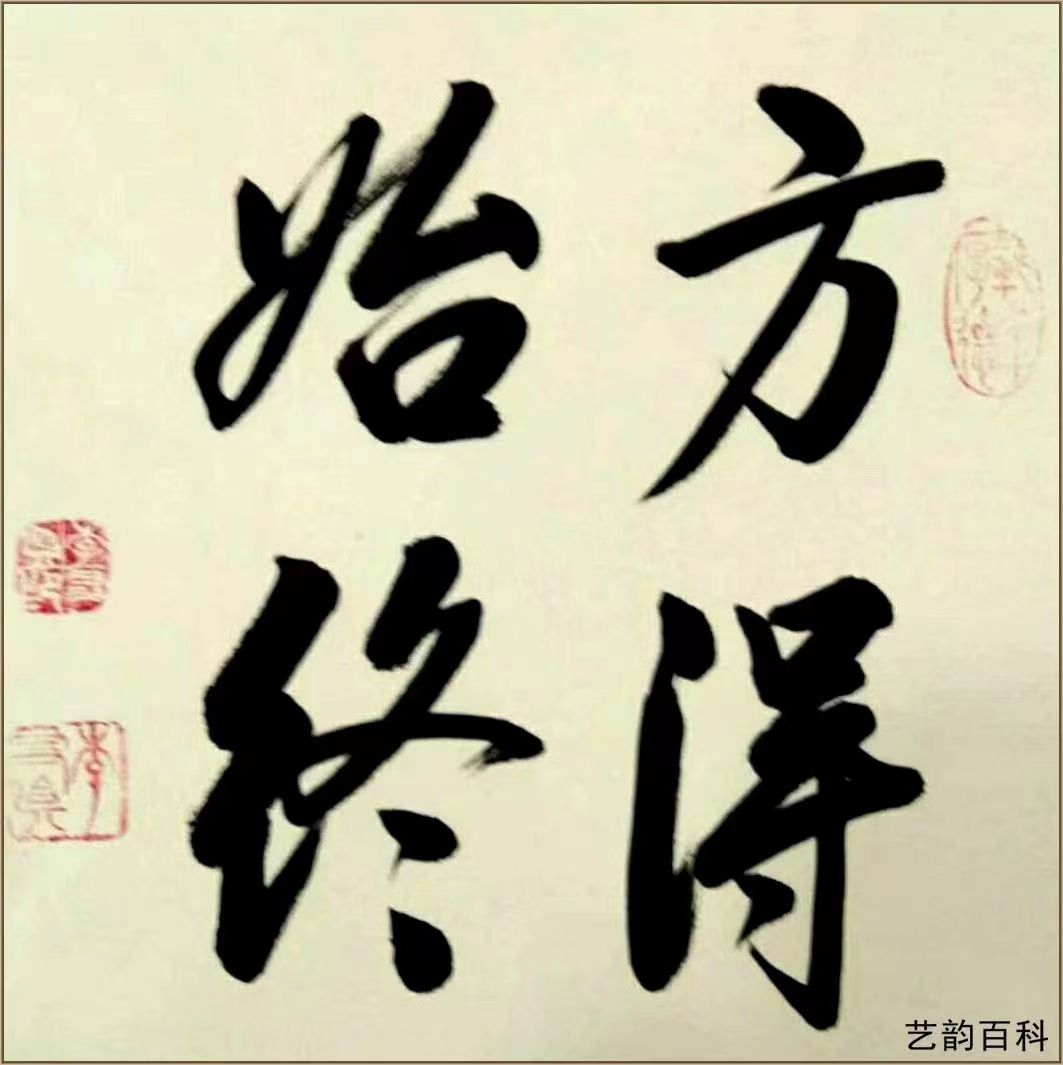 方得
始终
艺韵百科